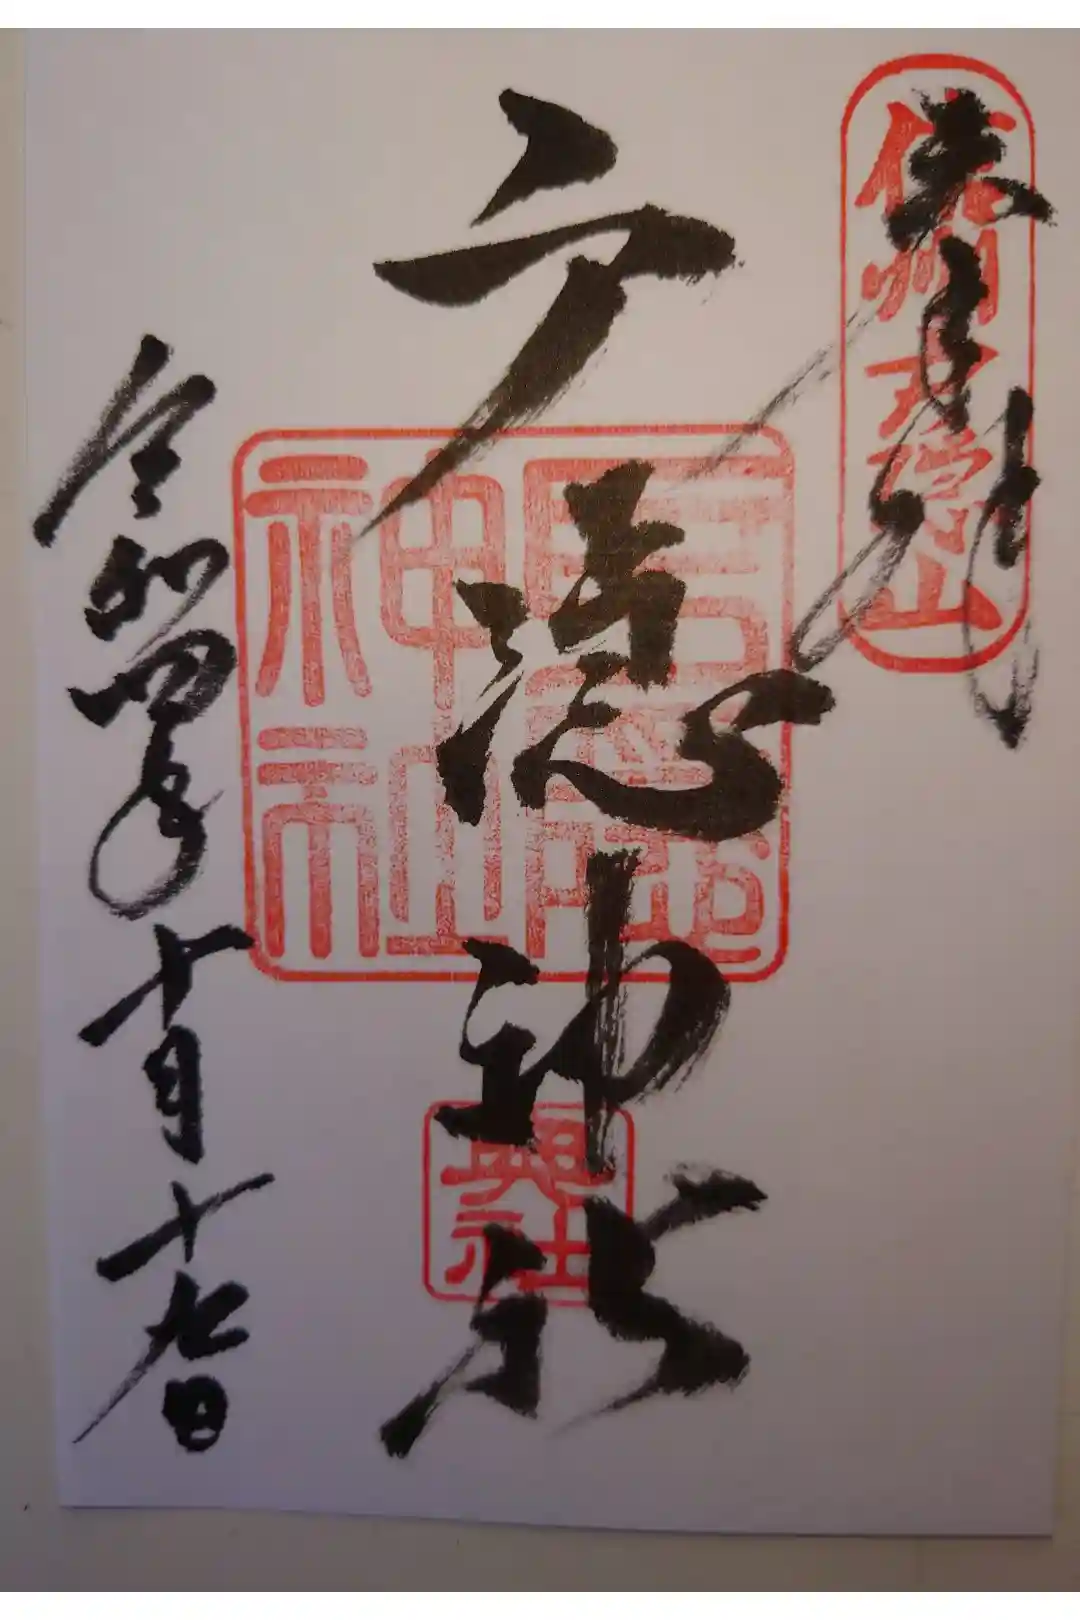 奉拝
信州戸隠山
戸隠神社
戸隠神社
奥社
令和四年十月十九日